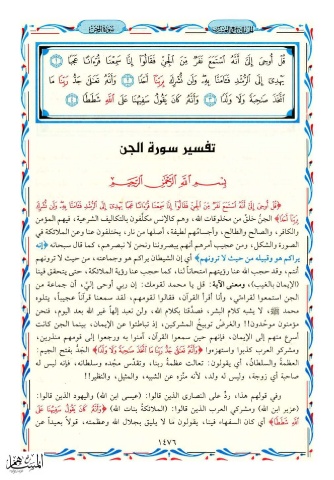 قُلْ أُوحِيَ إِلَيَّ أَنَّهُ اسْتَمَعَ نَفَرٌ مِنَ الْجِنِّ فَقَالُوا إِنَّا سَمِعْنَا قُرْآنًا عَجَبًا ١
يَهْدِي إِلَى الرُّشْدِ فَآمَنَّا بِهِ وَلَنْ نُشْرِكَ بِرَبِّنَا أَحَدًا ٢ وَأَنَّهُ تَعَالَى جَدُّ رَبِّنَا مَا
اتَّخَذَ صَاحِبَةً وَلَا وَلَدًا ٣ وَأَنَّهُ كَانَ يَقُولُ سَفِيهُنَا عَلَى اللَّهِ شَطَطًا ٤
تفسير سورة الجن
بِسْمِ اللَّهِ الرَّحْمَنِ الرَّحِيمِ
﴿قُلْ أُوحِيَ إِلَيَّ أَنَّهُ اسْتَمَعَ نَفَرٌ مِنَ الْجِنِّ فَقَالُوا إِنَّا سَمِعْنَا قُرْآنًا عَجَبًا يَهْدِي إِلَى الرُّشْدِ فَآمَنَّا بِهِ وَلَنْ نُشْرِكَ
بِرَبِّنَا أَحَدًا﴾ الجنُّ خلقٌ من مخلوقات الله، وهم كالإنس مكلَّفون بالتكاليف الشرعية، فيهم المؤمن
والكافر، والصالح والطالح، وأجسامُهم لطيفة، أصلها من نار، يختلفون عنا وعن الملائكة في
الصورة والشكل، ومن عجيب أمرهم أنهم يبصروننا ونحن لا نبصرهم، كما قال سبحانه ﴿إنه
يراكم هو وقبيله من حيث لا ترونهم﴾ أي إن الشيطان يراكم هو وجماعته، من حيث لا ترونهم
أنتم، وقد حجب الله عنا رؤيتهم امتحاناً لنا، كما حجب عنا رؤية الملائكة، حتى يتحقق فينا
(الإيمان بالغيب)، ومعنى الآية: قل يا محمد لقومك: إن ربي أوحى إليَّ، أن جماعة من
الجن استمعوا لقراءتي، وأنا أقرأ القرآن، فقالوا لقومهم، لقد سمعنا قرآناً عجيباً، يتلوه
محمد ﷺ، لا يشبه كلام البشر، فصدَّقنا بكلام الله، ولن نعبد إلهاً غير الله بعد اليوم، فنحن
مؤمنون موحدون!! والغرضُ توبيخُ المشركين، إذ تباطئوا عن الإيمان، بينما الجن كانت
أسرع منهم إلى الإيمان، فإنهم حين سمعوا القرآن، آمنوا به ورجعوا إلى قومهم منذرين،
ومشركو العرب كذبوا واستهزءوا ﴿وَأَنَّهُ تَعَالَى جَدُّ رَبِّنَا مَا اتَّخَذَ صَاحِبَةً وَلَا وَلَدًا﴾ الجَدُّ بفتح الجيم:
العظمةُ والسلطانُ، أي يقولون: تعالت عظمةُ ربنا، وتقدَّس مجده وسلطانه، فإنه ليس له
صاحبة أي زوجة، وليس له ولد، لأنه منزَّه عن الشبيه، والمثيل، والنظير!!
وفي قولهم هذا، ردٌّ على النصارى الذين قالوا: (عيسى ابن الله) واليهود الذين قالوا:
(عزير ابن الله) ومشركي العرب الذين قالوا: (الملائكة بنات الله) ﴿وَأَنَّهُ كَانَ يَقُولُ سَفِيهُنَا عَلَى
اللَّهِ شَطَطًا﴾ أي كان السفهاء فينا، يقولون ما لا يليق بجلال الله وعظمته، قولاً بعيداً عن
١٤٧٦